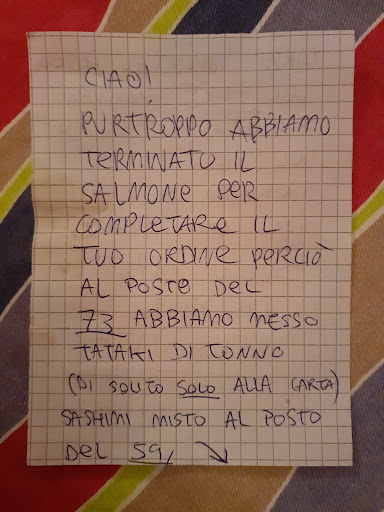 CIAO!
PURTROPPO ABBIAMO
TERMINATO IL
SALMONE PER
COMPLETARE IL
TUO ORDINE PERCIÒ
AL POSTE DEL
73 ABBIAMO MESSO
TATAKI DI TONNO
(DI SOLITO SOLO ALLA CARTA)
SASHIMI MISTO AL POSTO
DEL 59, ↘